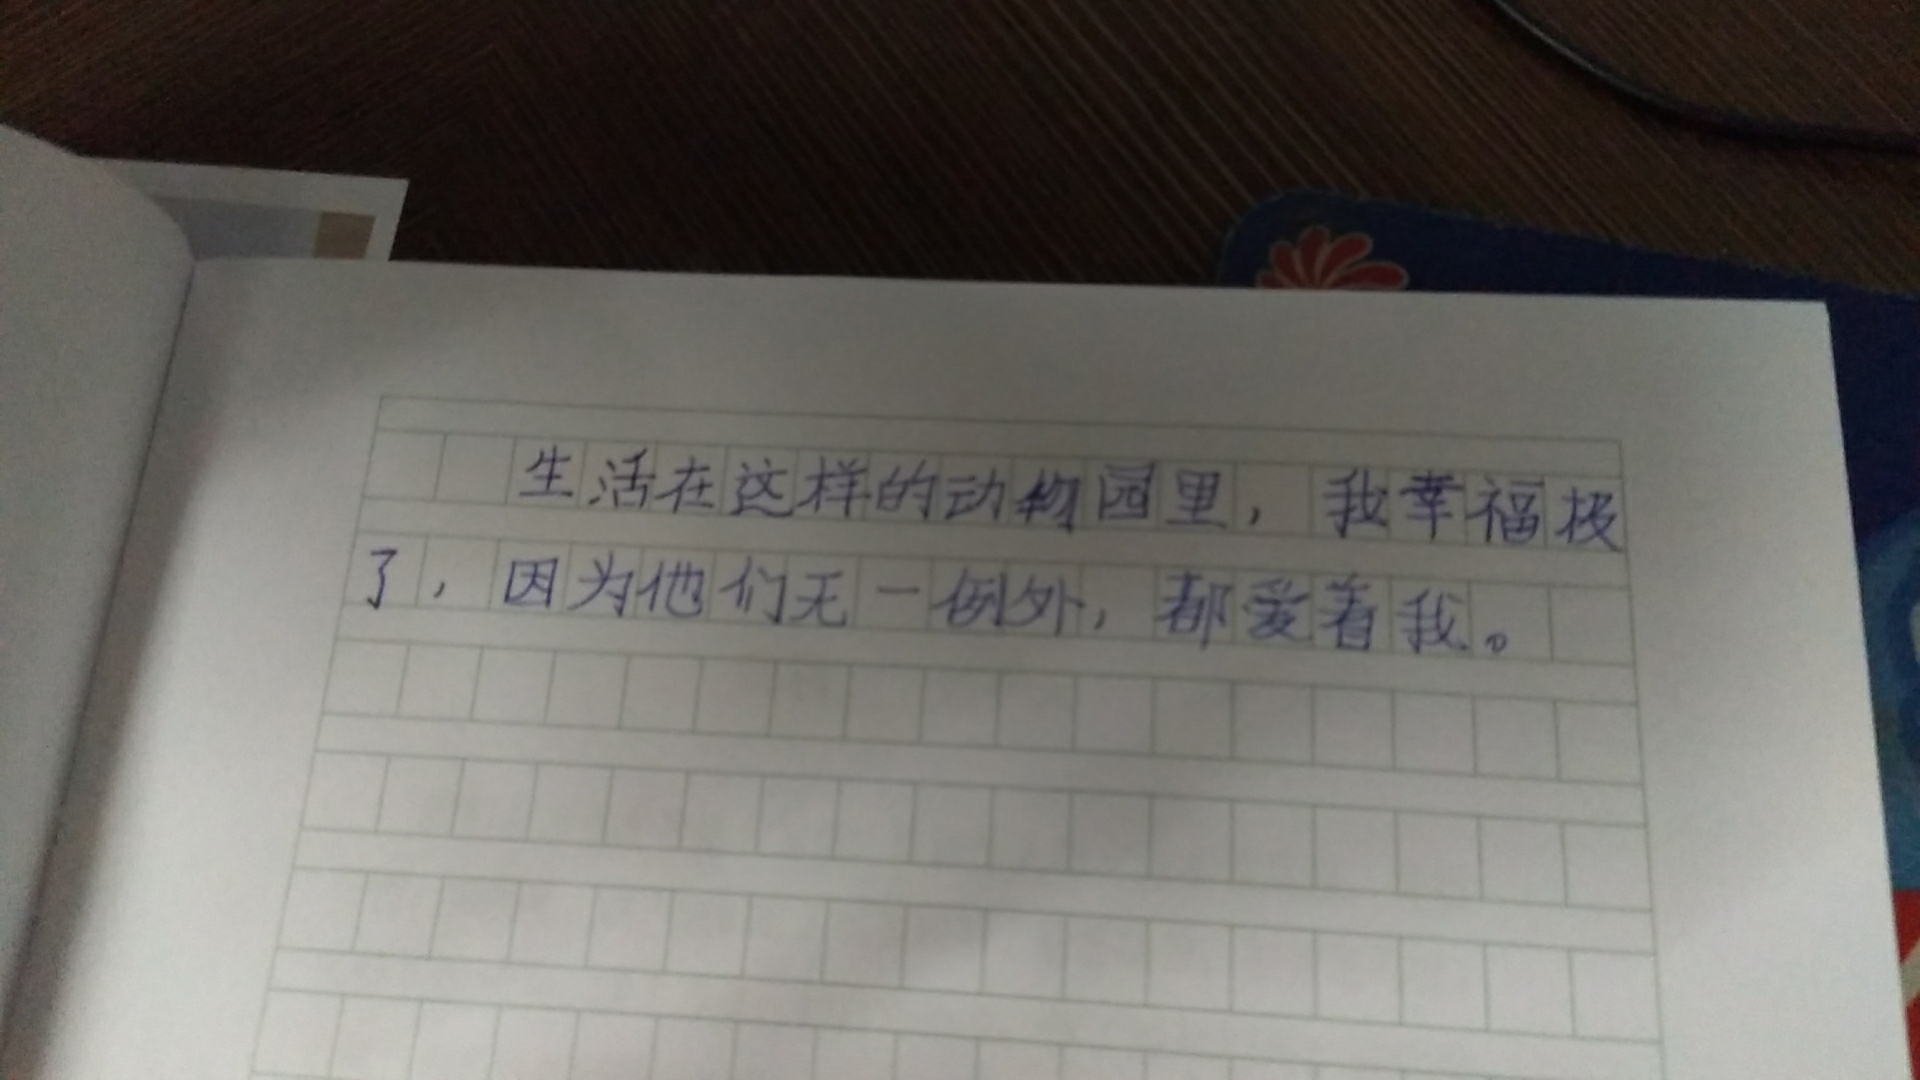 生活在这样的动物园里，我幸福极
了，因为他们无一例外，都爱着我。